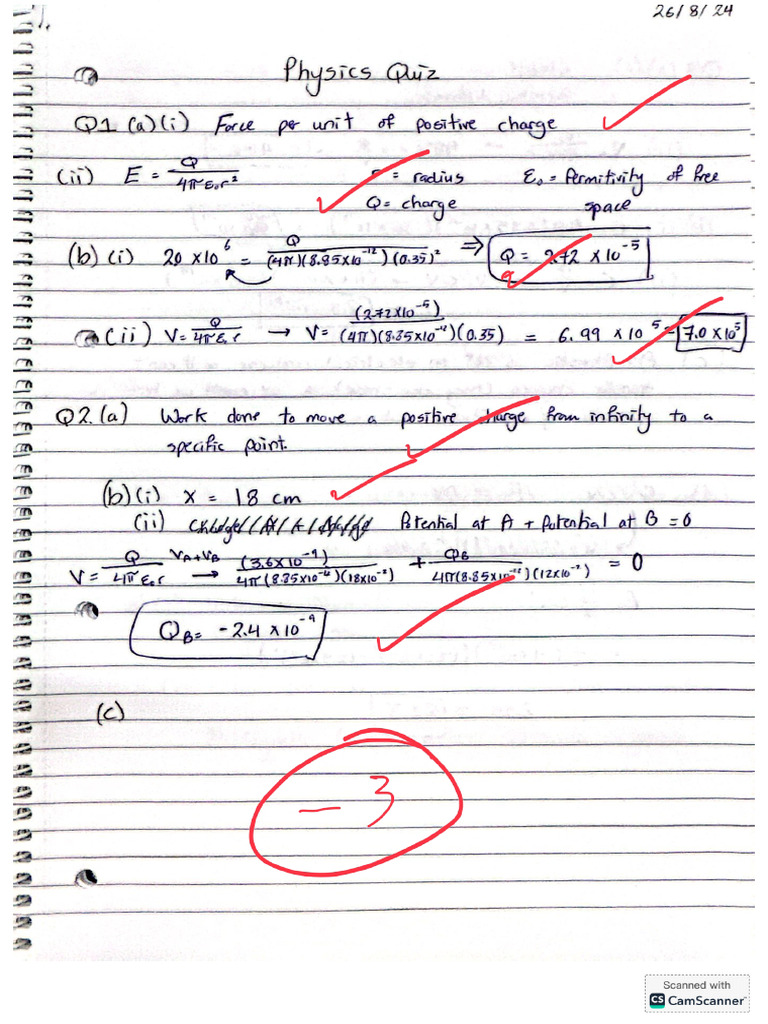 26/8/24
Physics Quiz
Q1 (a)(i) Force per unit of positive charge
(ii) E = Q / 4πε₀r² = radius ε₀ = Permitivity of free
Q = charge space
(b) (i) 20 × 10⁶ = Q / (4π)(8.85×10⁻¹²)(0.35)² ⇒ Q = 2.72 × 10⁻⁵
(ii) V = Q / 4πε₀r → V = (2.72×10⁻⁵) / (4π)(8.85×10⁻¹²)(0.35) = 6.99 × 10⁵ = 7.0 × 10⁵
Q2. (a) Work done to move a positive charge from infinity to a
specific point.
(b)(i) x = 18 cm
(ii) Potential at A + Potential at B = 0
V = Q / 4πε₀r V_A+V_B → (3.6×10⁻⁹) / 4π(8.85×10⁻¹²)(18×10⁻²) + Q_B / 4π(8.85×10⁻¹²)(12×10⁻²) = 0
Q_B = -2.4 × 10⁻⁹
(c)
- 3
Scanned with
CS CamScanner